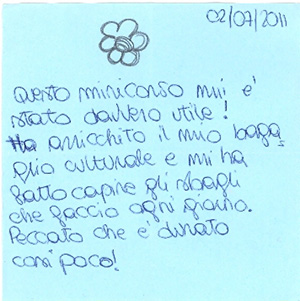 02/07/2011
Questo minicorso mi è
stato davvero utile!
Ha arricchito il mio baga
glio culturale e mi ha
fatto capire gli sbagli
che faccio ogni giorno.
Peccato che è durato
così poco!